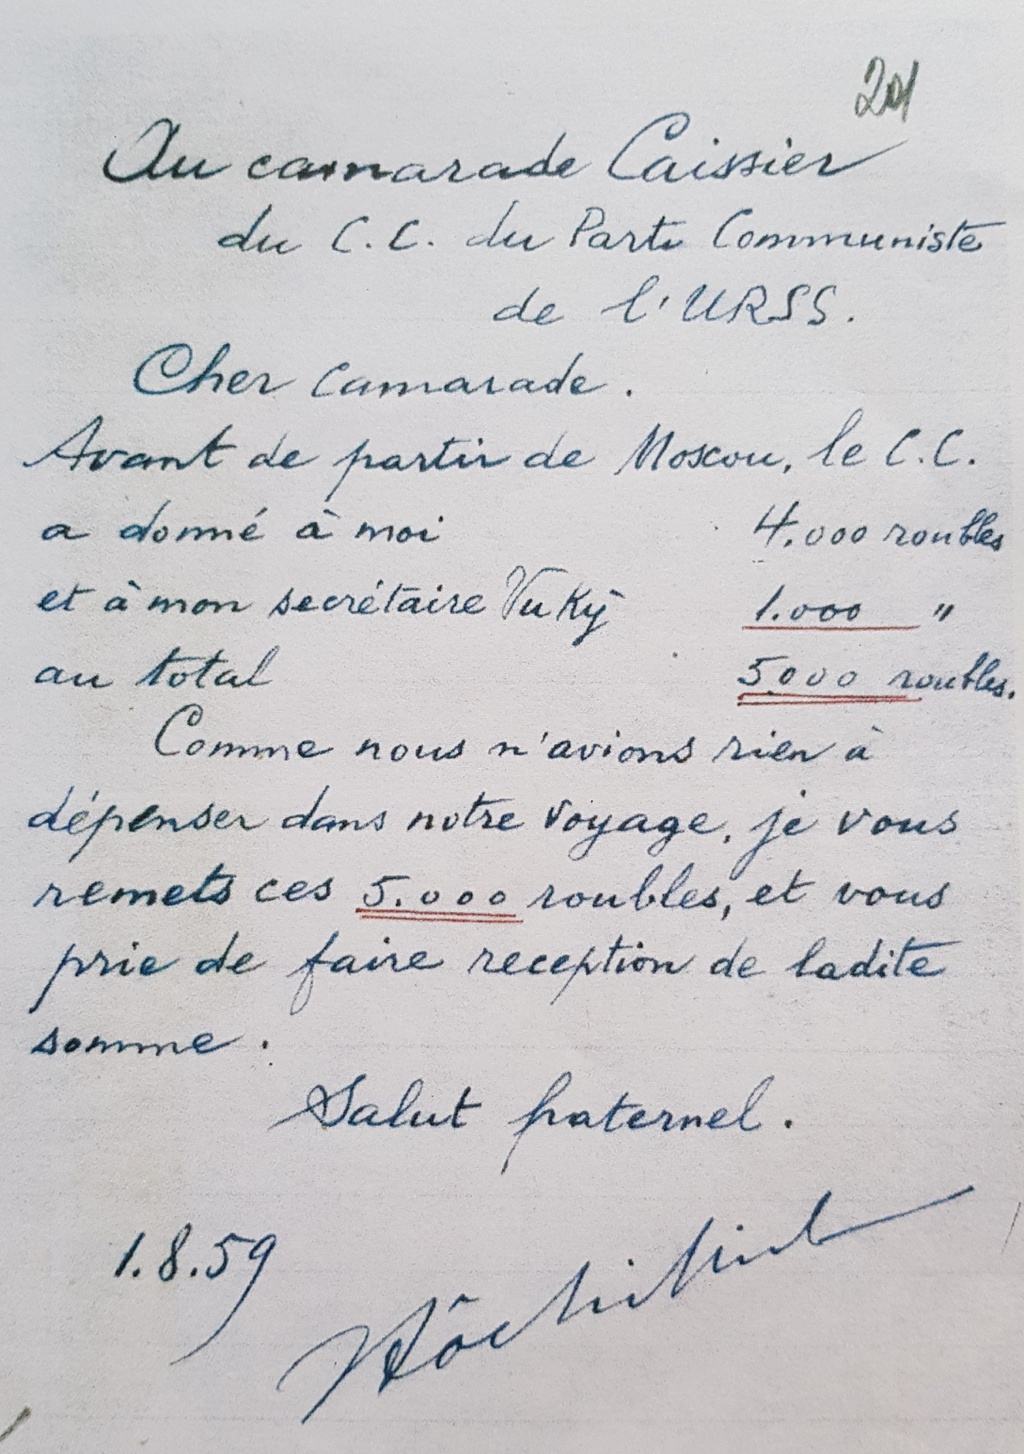 201
Au camarade Caissier
du C.C. du Parti Communiste
de l'URSS.
Cher Camarade.
Avant de partir de Moscou, le C.C.
a donné à moi 4.000 roubles
et à mon secrétaire Vu Ky 1.000 "
au total 5000 roubles.
Comme nous n'avions rien à
dépenser dans notre voyage, je vous
remets ces 5.000 roubles, et vous
prie de faire reception de ladite
somme.
Salut fraternel.
1.8.59
Hôchiminh